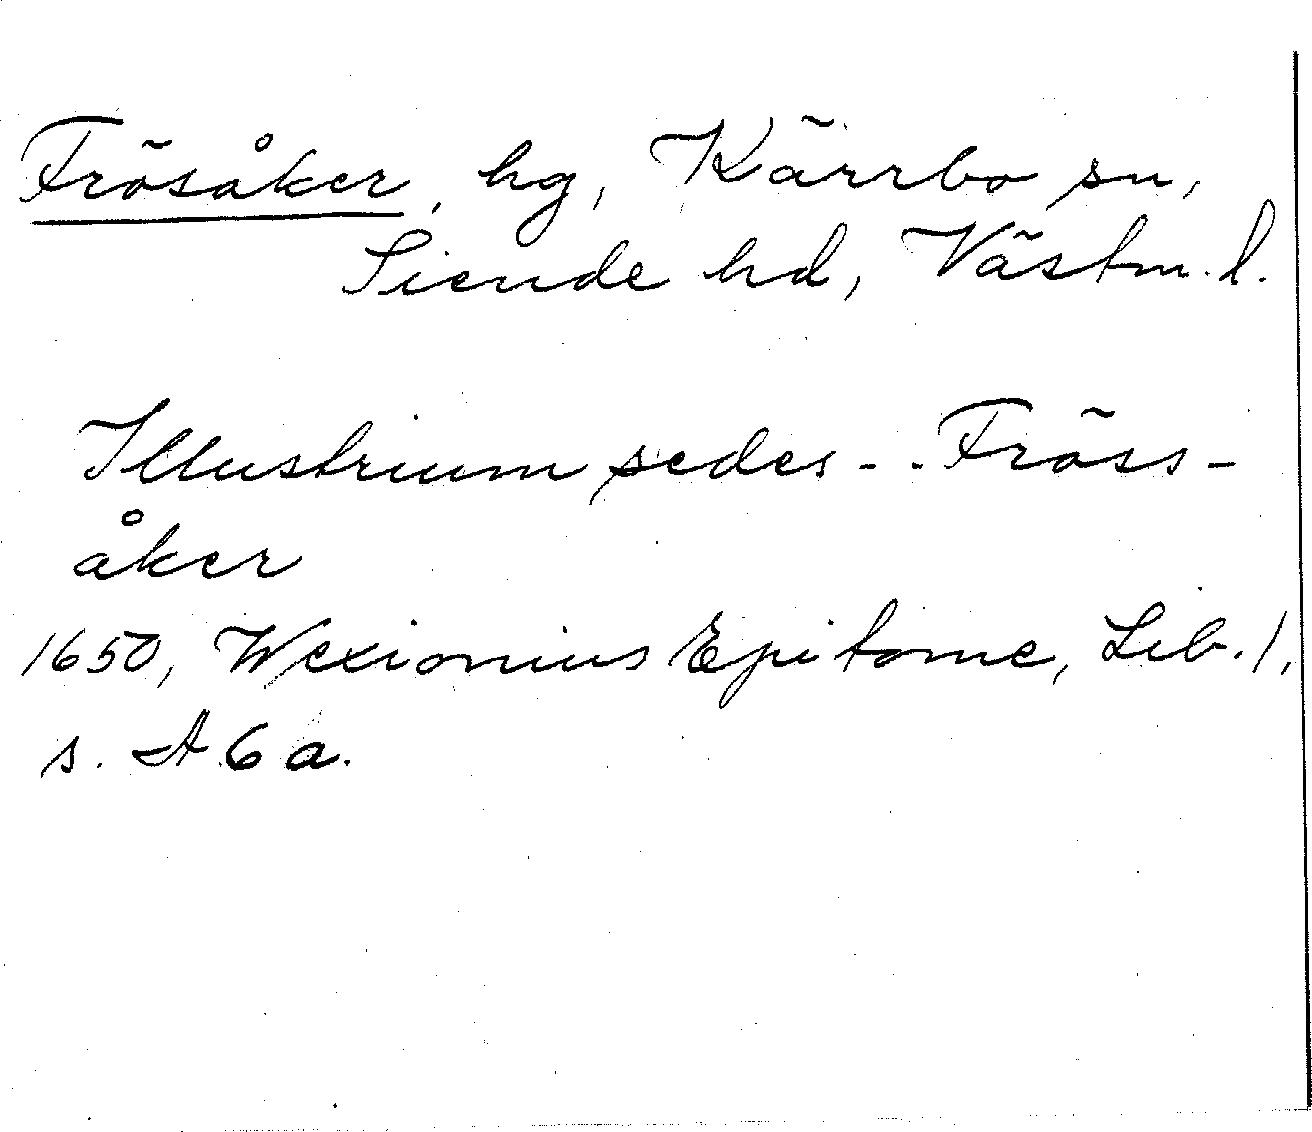 Frösåker, hg, Kärrbo sn,
Siende hd, Västm. l.
Illustrium sedes - - Fröss-
åker
1650, Wexionius Epitome, Lib. 1,
s. A 6 a.